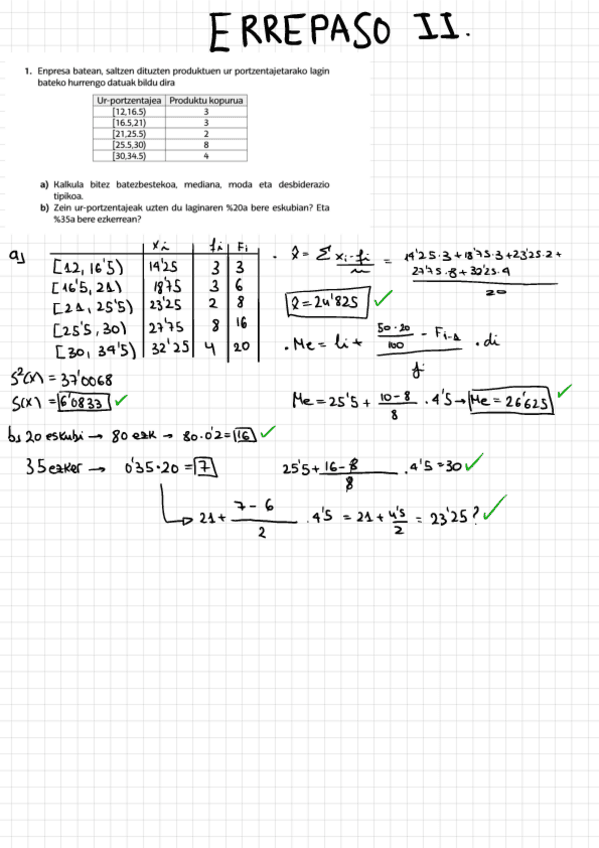 ERREPASO II.
1. Enpresa batean, saltzen dituzten produktuen ur portzentajetarako lagin
bateko hurrengo datuak bildu dira
Ur-portzentajea Produktu kopurua
[12,16.5) 3
[16.5,21) 3
[21,25.5) 2
[25.5,30) 8
[30,34.5) 4
a) Kalkula bitez batezbestekoa, mediana, moda eta desbiderazio
tipikoa.
b) Zein ur-portzentajeak uzten du laginaren %20a bere eskubian? Eta
%35a bere ezkerrean?
a)
xi fi Fi
[12, 16'5) 14'25 3 3
[16'5, 21) 18'75 3 6
[21, 25'5) 23'25 2 8
[25'5, 30) 27'75 8 16
[30, 34'5) 32'25 4 20
. x̄ = Σ xi·fi / n = 14'25·3+18'75·3+23'25·2+
27'75·8+32'25·4
20
x̄ = 24'825 ✓
. Me = li + 50·20/100 - Fi-1 / fi · di
S²(x) = 37'0068
S(x) = 6'0833 ✓
Me = 25'5 + 10-8/8 · 4'5 → Me = 26'625 ✓
b) 20 eskubi → 80 ezk → 80·0'2 = 16 ✓
35 ezker → 0'35·20 = 7
25'5 + 16-8/8 · 4'5 = 30 ✓
→ 21 + 7-6/2 · 4'5 = 21 + 4'5/2 = 23'25? ✓